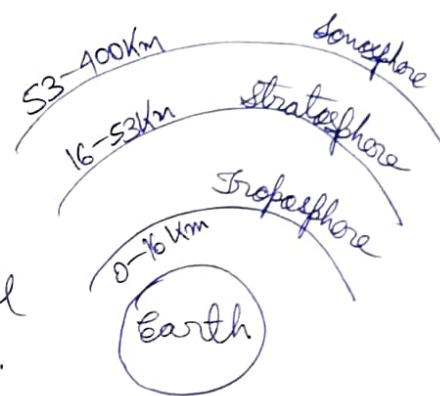 53-400Km Ionosphore
16-53Km Stratosphore
0-16 Km Troposphore
Earth